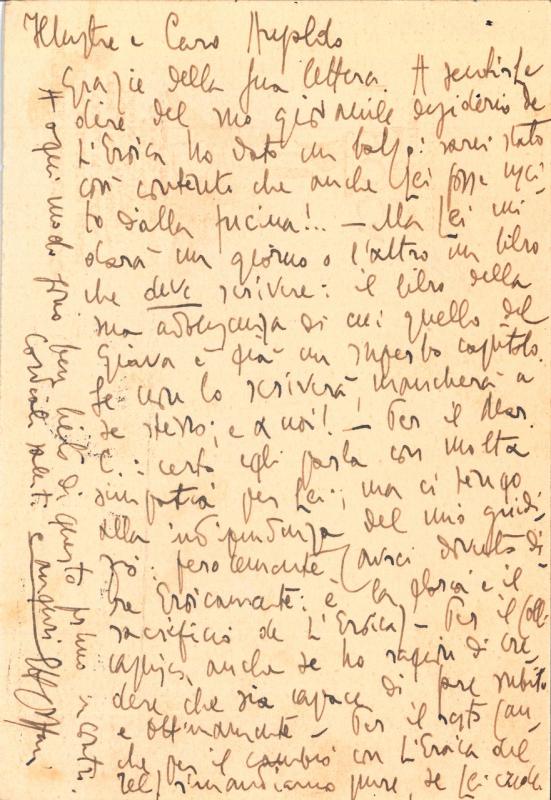 Illustre e Caro Arnaldo
grazie della sua lettera. A sentirle
dire del suo giovanile desiderio de
L'Eroica ho dato un balzo: sarei stato
così contento che anche Lei fosse usci-
to dalla fucina!.. — Ma Lei mi
darà un giorno o l'altro un libro
che deve scrivere: il libro della
sua adolescenza di cui quello del
è già un superbo capitolo.
Se non lo scriverà, mancherà a
se stesso; e a noi! — Per il
C.: certo egli parla con molta
simpatia per Lei; ma ci tengo
alla indipendenza del mio giudi-
zio: ferocemente (avrei dovuto di-
re Eroicamente: è la gloria e il
sacrificio de L'Eroica) — Per il
anche se ho ragion di cre-
dere che sia capace di fare subito
e ottimamente — Per il resto (an-
che per il cambio con L'Eroica del
rimandiamo pure, se Lei crede
A ogni modo sono ben lieto di questo primo incontro.
Cordiali saluti e auguri